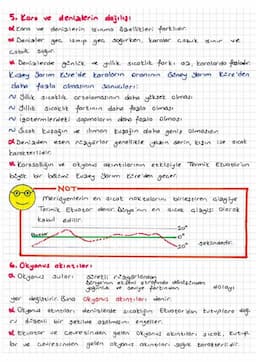 5. Kara ve denizlerin dağılışı
Kara ve denizlerin ısınma özellikleri farklıdır.
Denizler geç ısınıp geç soğurken, karalar çabuk ısınır ve
çabuk soğur.
Denizlerde günlük ve yıllık sıcaklık farkı az, karalarda fazladır.
Kuzey Yarım Küre'de karaların oranının Güney Yarım Küre'den
daha fazla olmasının sonuçları:
Yıllık sıcaklık ortalamasının daha yüksek olması
Yıllık sıcaklık farkının daha fazla olması
İzotermlerdeki sapmaların daha fazla olması
Sıcak kuşağın ve ılıman kuşağın daha geniş olmasıdır.
Denizden esen rüzgarlar genellikle yazın serin, kışın ise sıcak
karakterlidir.
Karasallığın ve okyanus akıntılarının etkisiyle Termik Ekvator'un
büyük bir bölümü Kuzey Yarım Küre'den geçer.
NOT
Meridyenlerin en sıcak noktalarını birleştiren çizgiye
Termik Ekvator denir. Dünya'nın en sıcak çizgisi olarak
kabul edilir.
20°
Ekvator
0°
20°
şeklindedir.
6. Okyanus akıntıları
Okyanus suları sürekli rüzgarlardan
Dünya'nın ekseni etrafında dönüşünden
yoğunluk ve seviye farkından
dolayı
yer değiştirir. Buna Okyanus akıntıları denir.
Okyanus akıntıları denizlerde sıcaklığın Ekvator'dan kutuplara doğ-
ru düzenli bir şekilde azalmasını engeller.
Ekvator ve çevresinden gelen okyanus akıntıları sıcak, kutup
ve çevresinden gelen okyanus akıntıları soğuk karakterlidir.